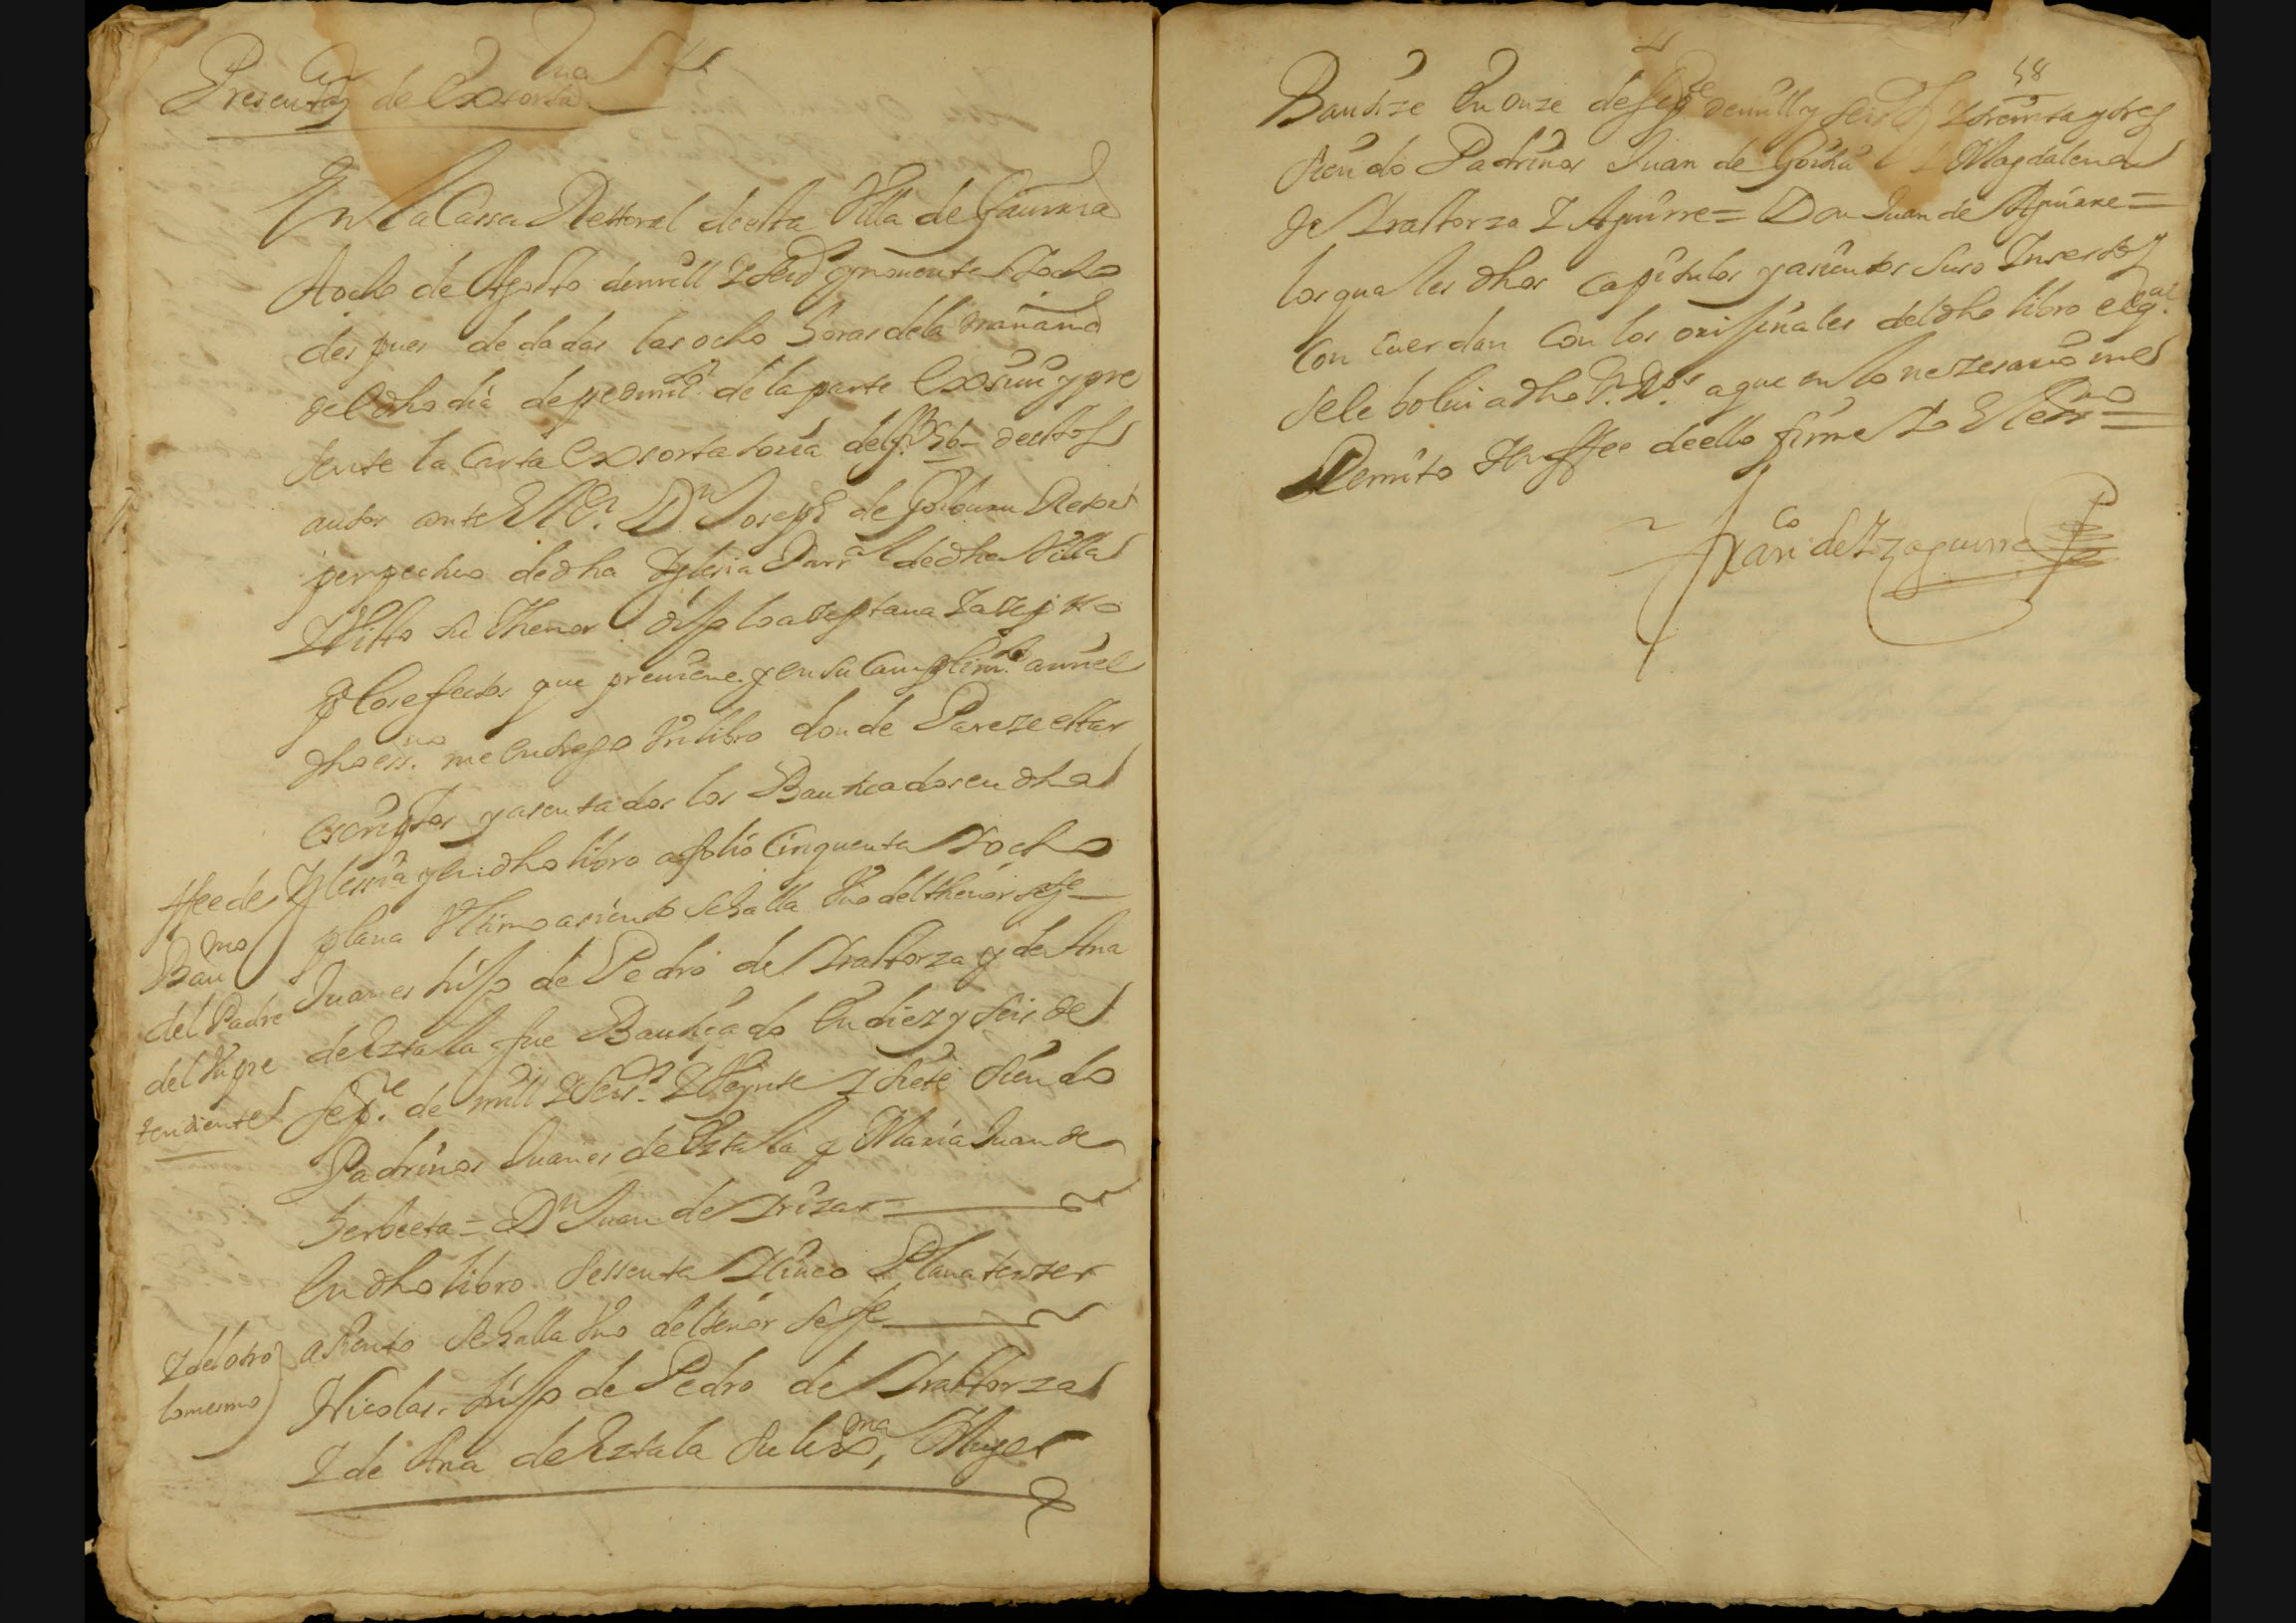 Presentaon de Exsortria
En la Cassa Rettoral de esta Villa de Gauiria
A ocho de Agosto de mill y seisos y nouenta y ocho
despues de dadas las ocho horas de la mañana
del dho dia de pedimto de la parte Exsiui y pre
sente la Carta Exsortatoria del fo 56 destos
autos ante El Sr Dn Joseph de Rector
perpectuo de dha Yglesia Parral de dha Villa
Y Visto su thenor dijo lo aseptaua y asepto
pa los efectos que preuiene y en su Cumplimto a mi el
dho essno me entrego Vn libro donde Pareze estar
escriptos y asentados los Bautiçados en dha
Yglessia y en dho libro a folio Cinquenta y ocho
plana Vltimo asiento se halla Vno del thenor sigte
Juanes hijo de Pedro de Yraltorza y de Ana
de Eztala fue Bautiçado En diez y seis de
sepre de mill y seisos y Veynte y siete siendo
Padrinos Juanes de Eztala y Maria Juan de
herbeeta = Dn Juan de Yrizar =
En dho libro sessenta y Cinco Plana terzer
asiento se halla Vno del tenor sigte
Nicolas hijo de Pedro de Yraltorza
Y de Ana de Eztala su lexma Muger
ffee de
Baumo
del Padre
del Supre
tendiente
Y del otro
lo mesmo
58
Bautize En onze de sepre de mill y seisos y treinta y tres
siendo Padrinos Juan de y Magdalena
de Yraltorza Y Aguirre = Don Juan de Aguirre =
los quales dhos Capitulos y asientos suso Insertos
Con Cuerdan Con los orijinales del dho libro el qal
se le bolui a dho Sr Ror a que en lo nezesario me
Remito Y en ffee de ello firme Yo El essno =
Franco de Yzaguirre